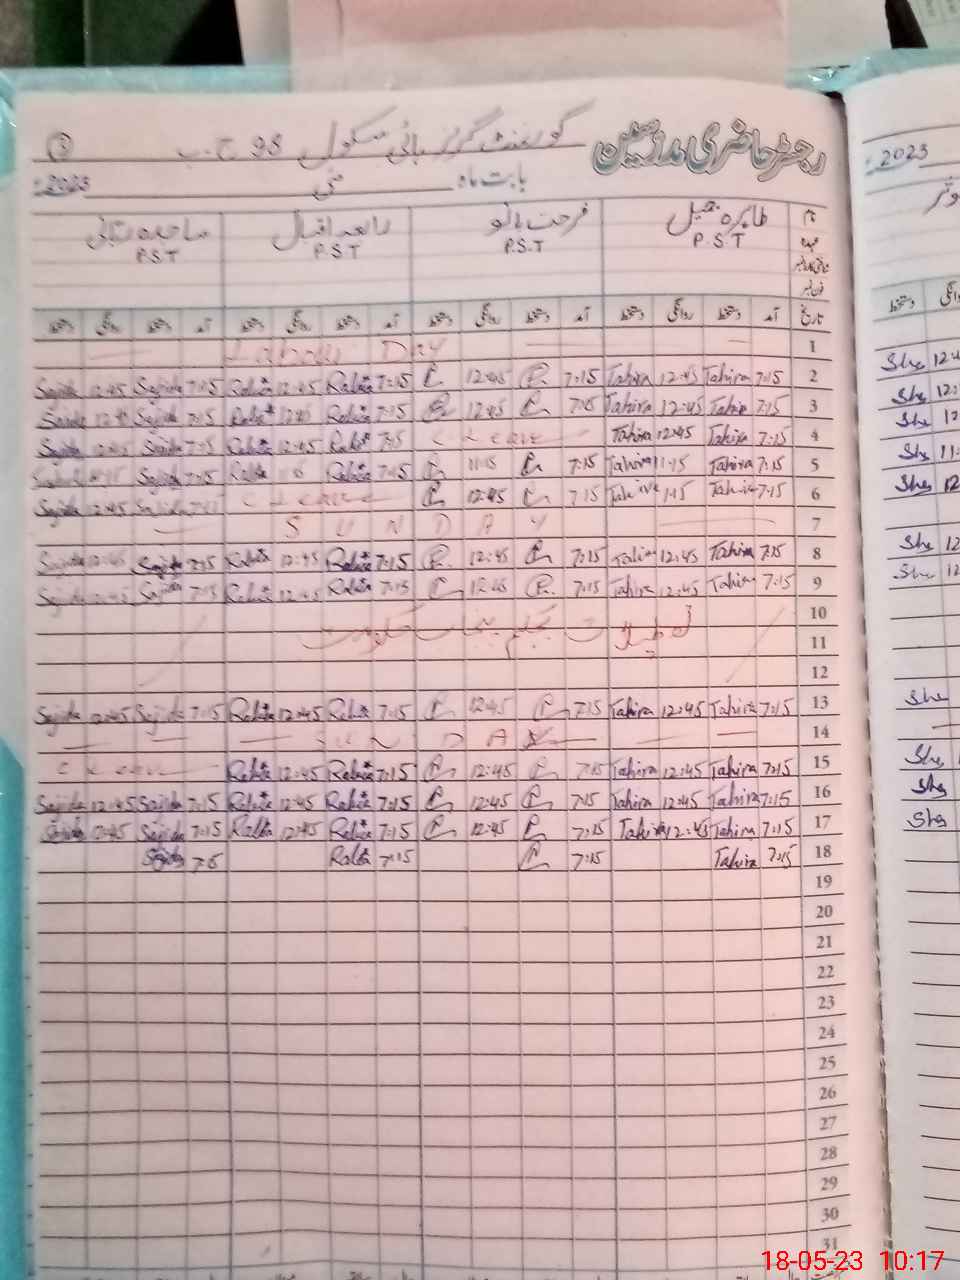 رجسٹر حاضری مدرسین گورنمنٹ گرلز ہائی سکول 98 ج۔ب 3
بابت ماہ مئی 2023ء
نام طاہرہ جمیل فرحت بانو رابعہ اقبال ساجدہ
عہدہ P.S.T P.S.T P.S.T P.S.T
شناختی کارڈ نمبر
فون نمبر
تاریخ آمد دستخط روانگی دستخط آمد دستخط روانگی دستخط آمد دستخط روانگی دستخط آمد دستخط روانگی دستخط
Labour Day 1
Sajida 12:45 Sajida 7:15 Rabia 12:45 Rabia 7:15 12:45 7:15 Tahira 12:45 Tahira 7:15 2
Sajida 12:45 Sajida 7:15 Rabia 12:45 Rabia 7:15 12:45 7:15 Tahira 12:45 Tahira 7:15 3
Sajida 12:45 Sajida 7:15 Rabia 12:45 Rabia 7:15 C Leave Tahira 12:45 Tahira 7:15 4
Sajida 11:15 Sajida 7:15 Rabia 11:15 Rabia 7:15 11:15 7:15 Tahira 11:15 Tahira 7:15 5
Sajida 12:45 Sajida 7:15 C Leave 12:45 7:15 Tahira Tahira 7:15 6
SUNDAY 7
Sajida 12:45 Sajida 7:15 Rabia 12:45 Rabia 7:15 12:45 7:15 Tahira 12:45 Tahira 7:15 8
Sajida 12:45 Sajida 7:15 Rabia 12:45 Rabia 7:15 12:45 7:15 Tahira 12:45 Tahira 7:15 9
10
تعطیلات بحکم پنجاب حکومت 11
12
Sajida 12:45 Sajida 7:15 Rabia 12:45 Rabia 7:15 12:45 7:15 Tahira 12:45 Tahira 7:15 13
SUNDAY 14
C Leave Rabia 12:45 Rabia 7:15 12:45 7:15 Tahira 12:45 Tahira 7:15 15
Sajida 12:45 Sajida 7:15 Rabia 12:45 Rabia 7:15 12:45 7:15 Tahira 12:45 Tahira 7:15 16
Sajida 12:45 Sajida 7:15 Rabia 12:45 Rabia 7:15 12:45 7:15 Tahira 12:45 Tahira 7:15 17
Sajida Rabia 7:15 7:15 Tahira 7:15 18
19
20
21
22
23
24
25
26
27
28
29
30
31
2023
دستخط
Sha 12:4
Sha 12:
Sha 12
Sha 11:
Sha 12
Sha 12
Sha 12
Sha
Sha
Sha
Sha
18-05-23 10:17